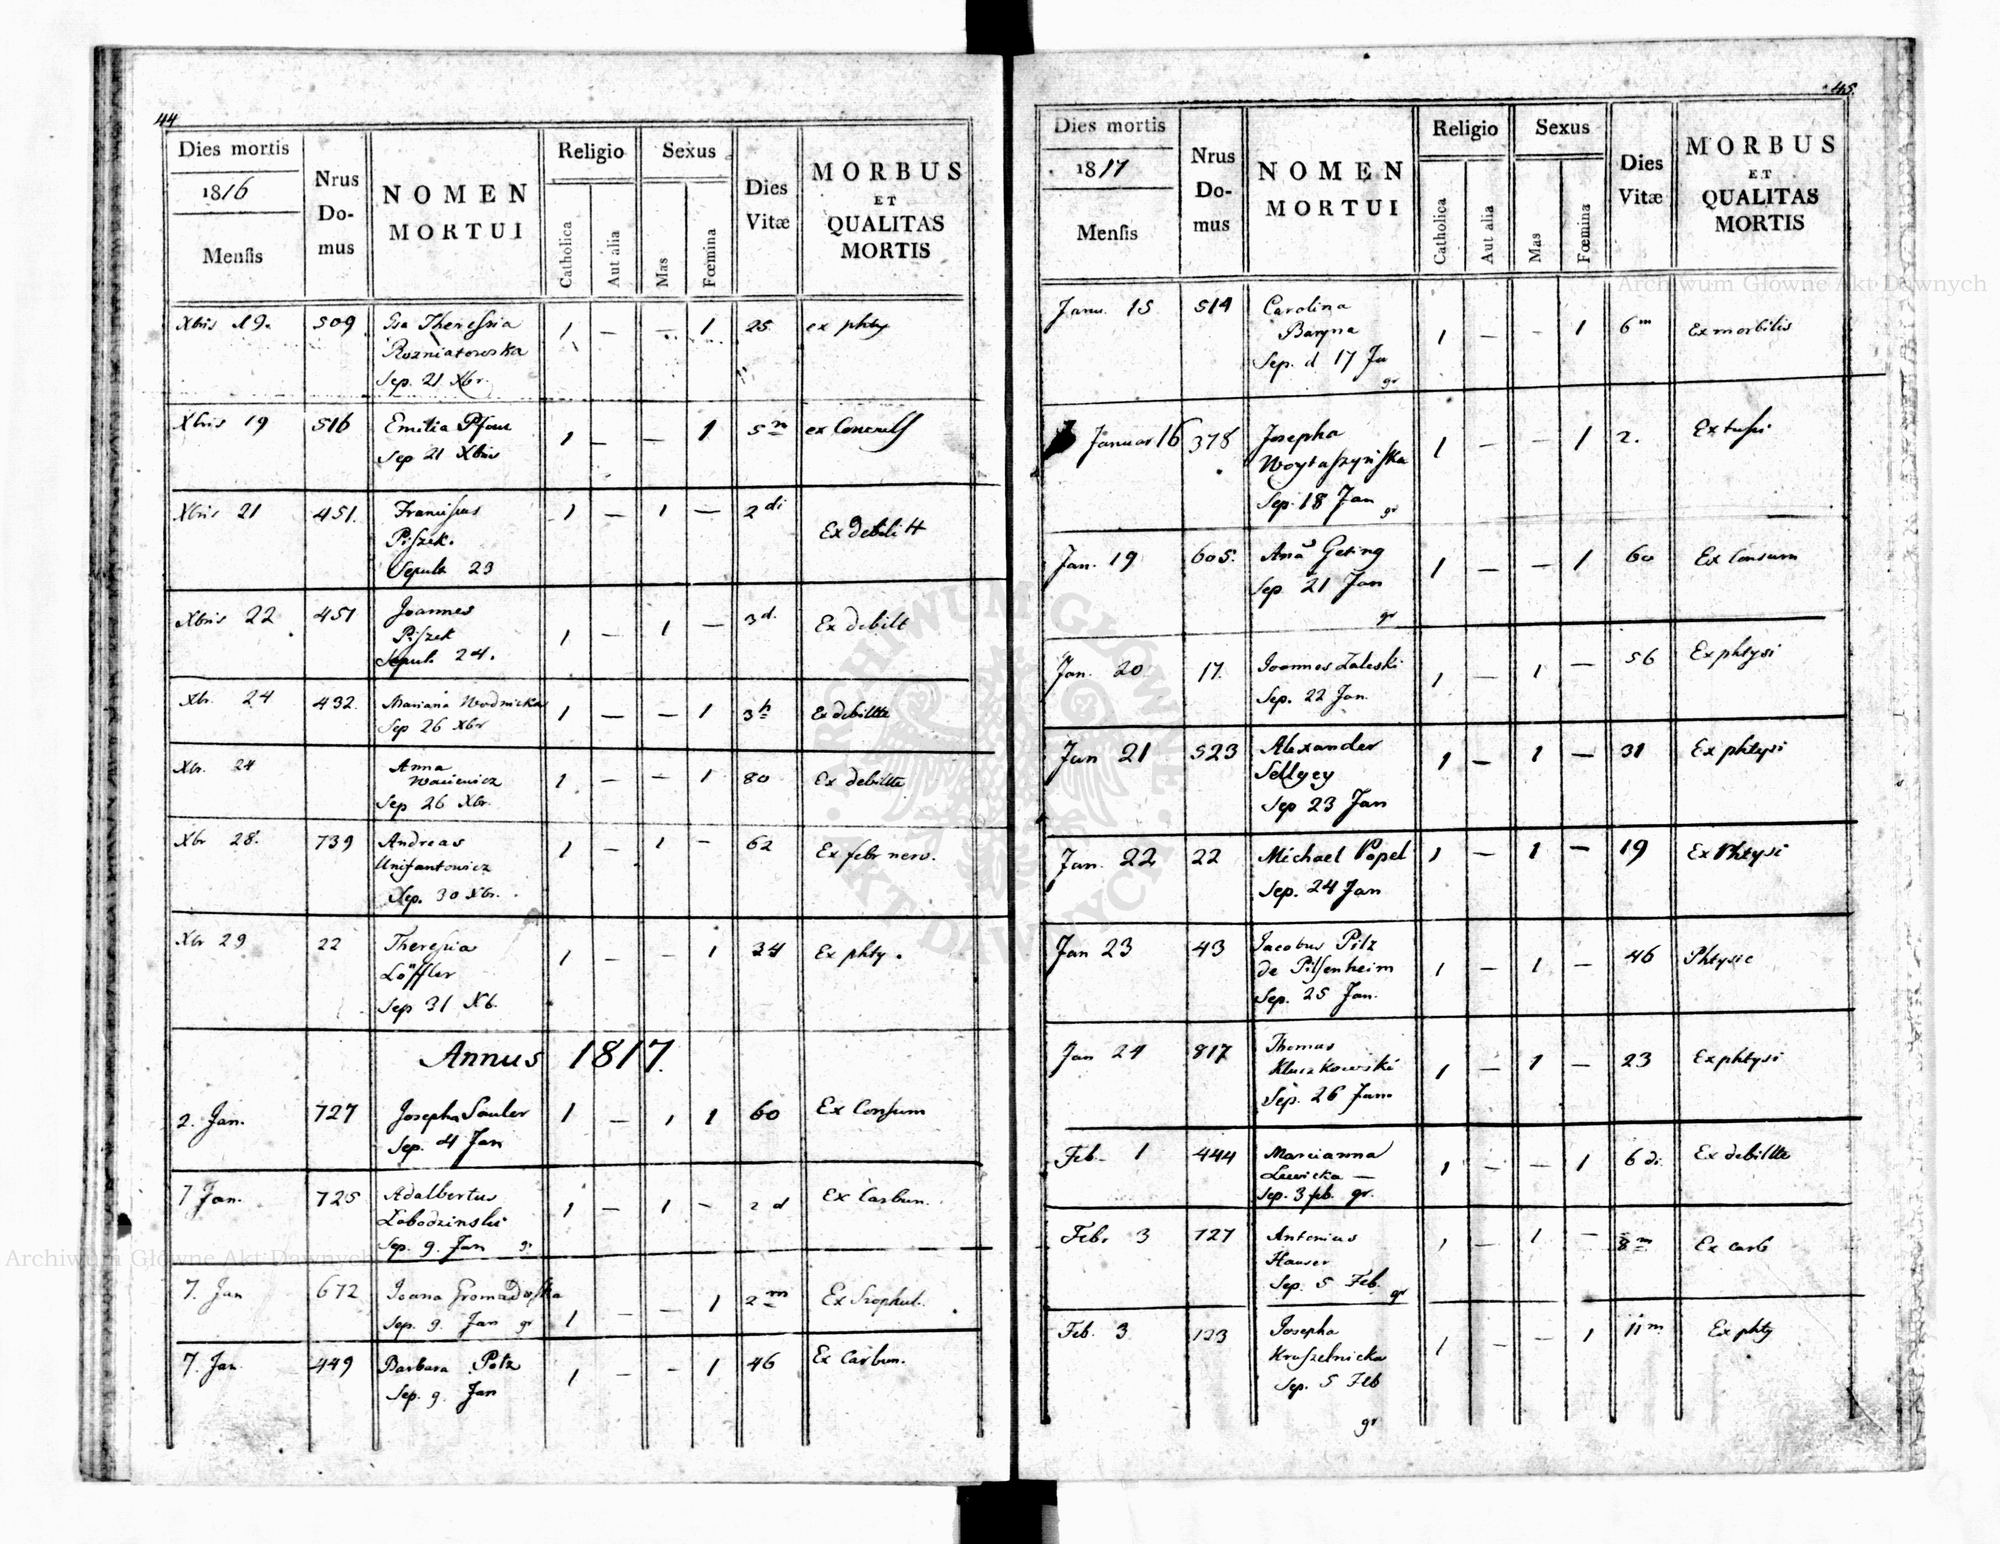 44
Dies mortis
1816
Mensis
Nrus
Do-
mus
NOMEN
MORTUI
Religio
Catholica
Aut alia
Sexus
Mas
Fœmina
Dies
Vitæ
MORBUS
ET
QUALITAS
MORTIS
Xbris 19. 509 Theresia 1 — — 1 25 ex phty
Rozniatowska
Sep. 21 Xbr.
Xbris 19 516 Emilia 1 — — 1 5 m
Sep 21 Xbris
Xbris 21 451. Franciscus 1 — 1 — 2 di Ex debilitt
Piszek.
Sepult 23
Xbris 22 451 Joannes 1 — 1 — 3 d. Ex debilt
Piszek
Sepul. 24.
Xbr. 24 432 Mariana Wodnicka 1 — — 1 3 h Ex debilitte
Sep 26 Xbr
Xbr. 24 Anna 1 — — 1 80 Ex debilitte
Sep 26 Xbr.
Xbr 28. 739 Andreas 1 — 1 — 62 Ex febr nerv.
Unifantowicz
Sep. 30 Xbr.
Xbr 29 22 Theresia 1 — — 1 34 Ex phty.
Löffler
Sep 31 Xb.
Annus 1817.
2. Jan. 727 Josepha Sauler 1 — 1 1 60 Ex Consum
Sep. 4 Jan
7 Jan. 725 Adalbertus 1 — 1 — 2 d Ex Carbun.
Lobodzinski
Sep. 9. Jan gr
7. Jan 672 Joana Gromadzka 1 — — 1 2 m
Sep. 9. Jan gr
7. Jan 449 Barbara Potz 1 — — 1 46 Ex Carbun.
Sep. 9. Jan
45.
Dies mortis
1817
Mensis
Nrus
Do-
mus
NOMEN
MORTUI
Religio
Catholica
Aut alia
Sexus
Mas
Fœmina
Dies
Vitæ
MORBUS
ET
QUALITAS
MORTIS
Janu. 15 514 Carolina 1 — — 1 6 m Ex morbilis
Baryna
Sep. d 17 Ja
gr
Januar 16 378 Josepha 1 — — 1 2. Ex tussi
Woytaszynska
Sep. 18 Jan gr
Jan. 19 605. Ana Geting 1 — — 1 60 Ex Consum
Sep. 21 Jan
gr
Jan. 20 17. Joannes Zaleski 1 — 1 — 56 Ex phtysi
Sep. 22 Jan.
Jan 21 523 Alexander 1 — 1 — 31 Ex phtysi
Sellyey
Sep 23 Jan
Jan. 22 22 Michael Popel 1 — 1 — 19 Ex Phtysi
Sep. 24 Jan
Jan 23 43 Jacobus Pilz 1 — 1 — 46 Phtysic
de Pilsenheim
Sep. 25 Jan.
Jan 24 817 Thomas 1 — 1 — 23 Ex phtysi
Kluczkowski
Sep. 26 Jan.
Feb. 1 444 Marianna 1 — — 1 6 di Ex debilitte
Lewicka —
Sep. 3 feb. gr.
Febr 3 727 Antonius 1 — 1 — 8 m Ex carb
Hauser
Sep. 5 Feb.
gr
Feb. 3 123 Josepha 1 — — 1 11 m Ex phty
Kruszelnicka
Sep. 5 Feb
gr
Archiwum Główne Akt Dawnych
Archiwum Główne Akt Dawnych
ARCHIWUM GŁÓWNE · AKT DAWNYCH ·